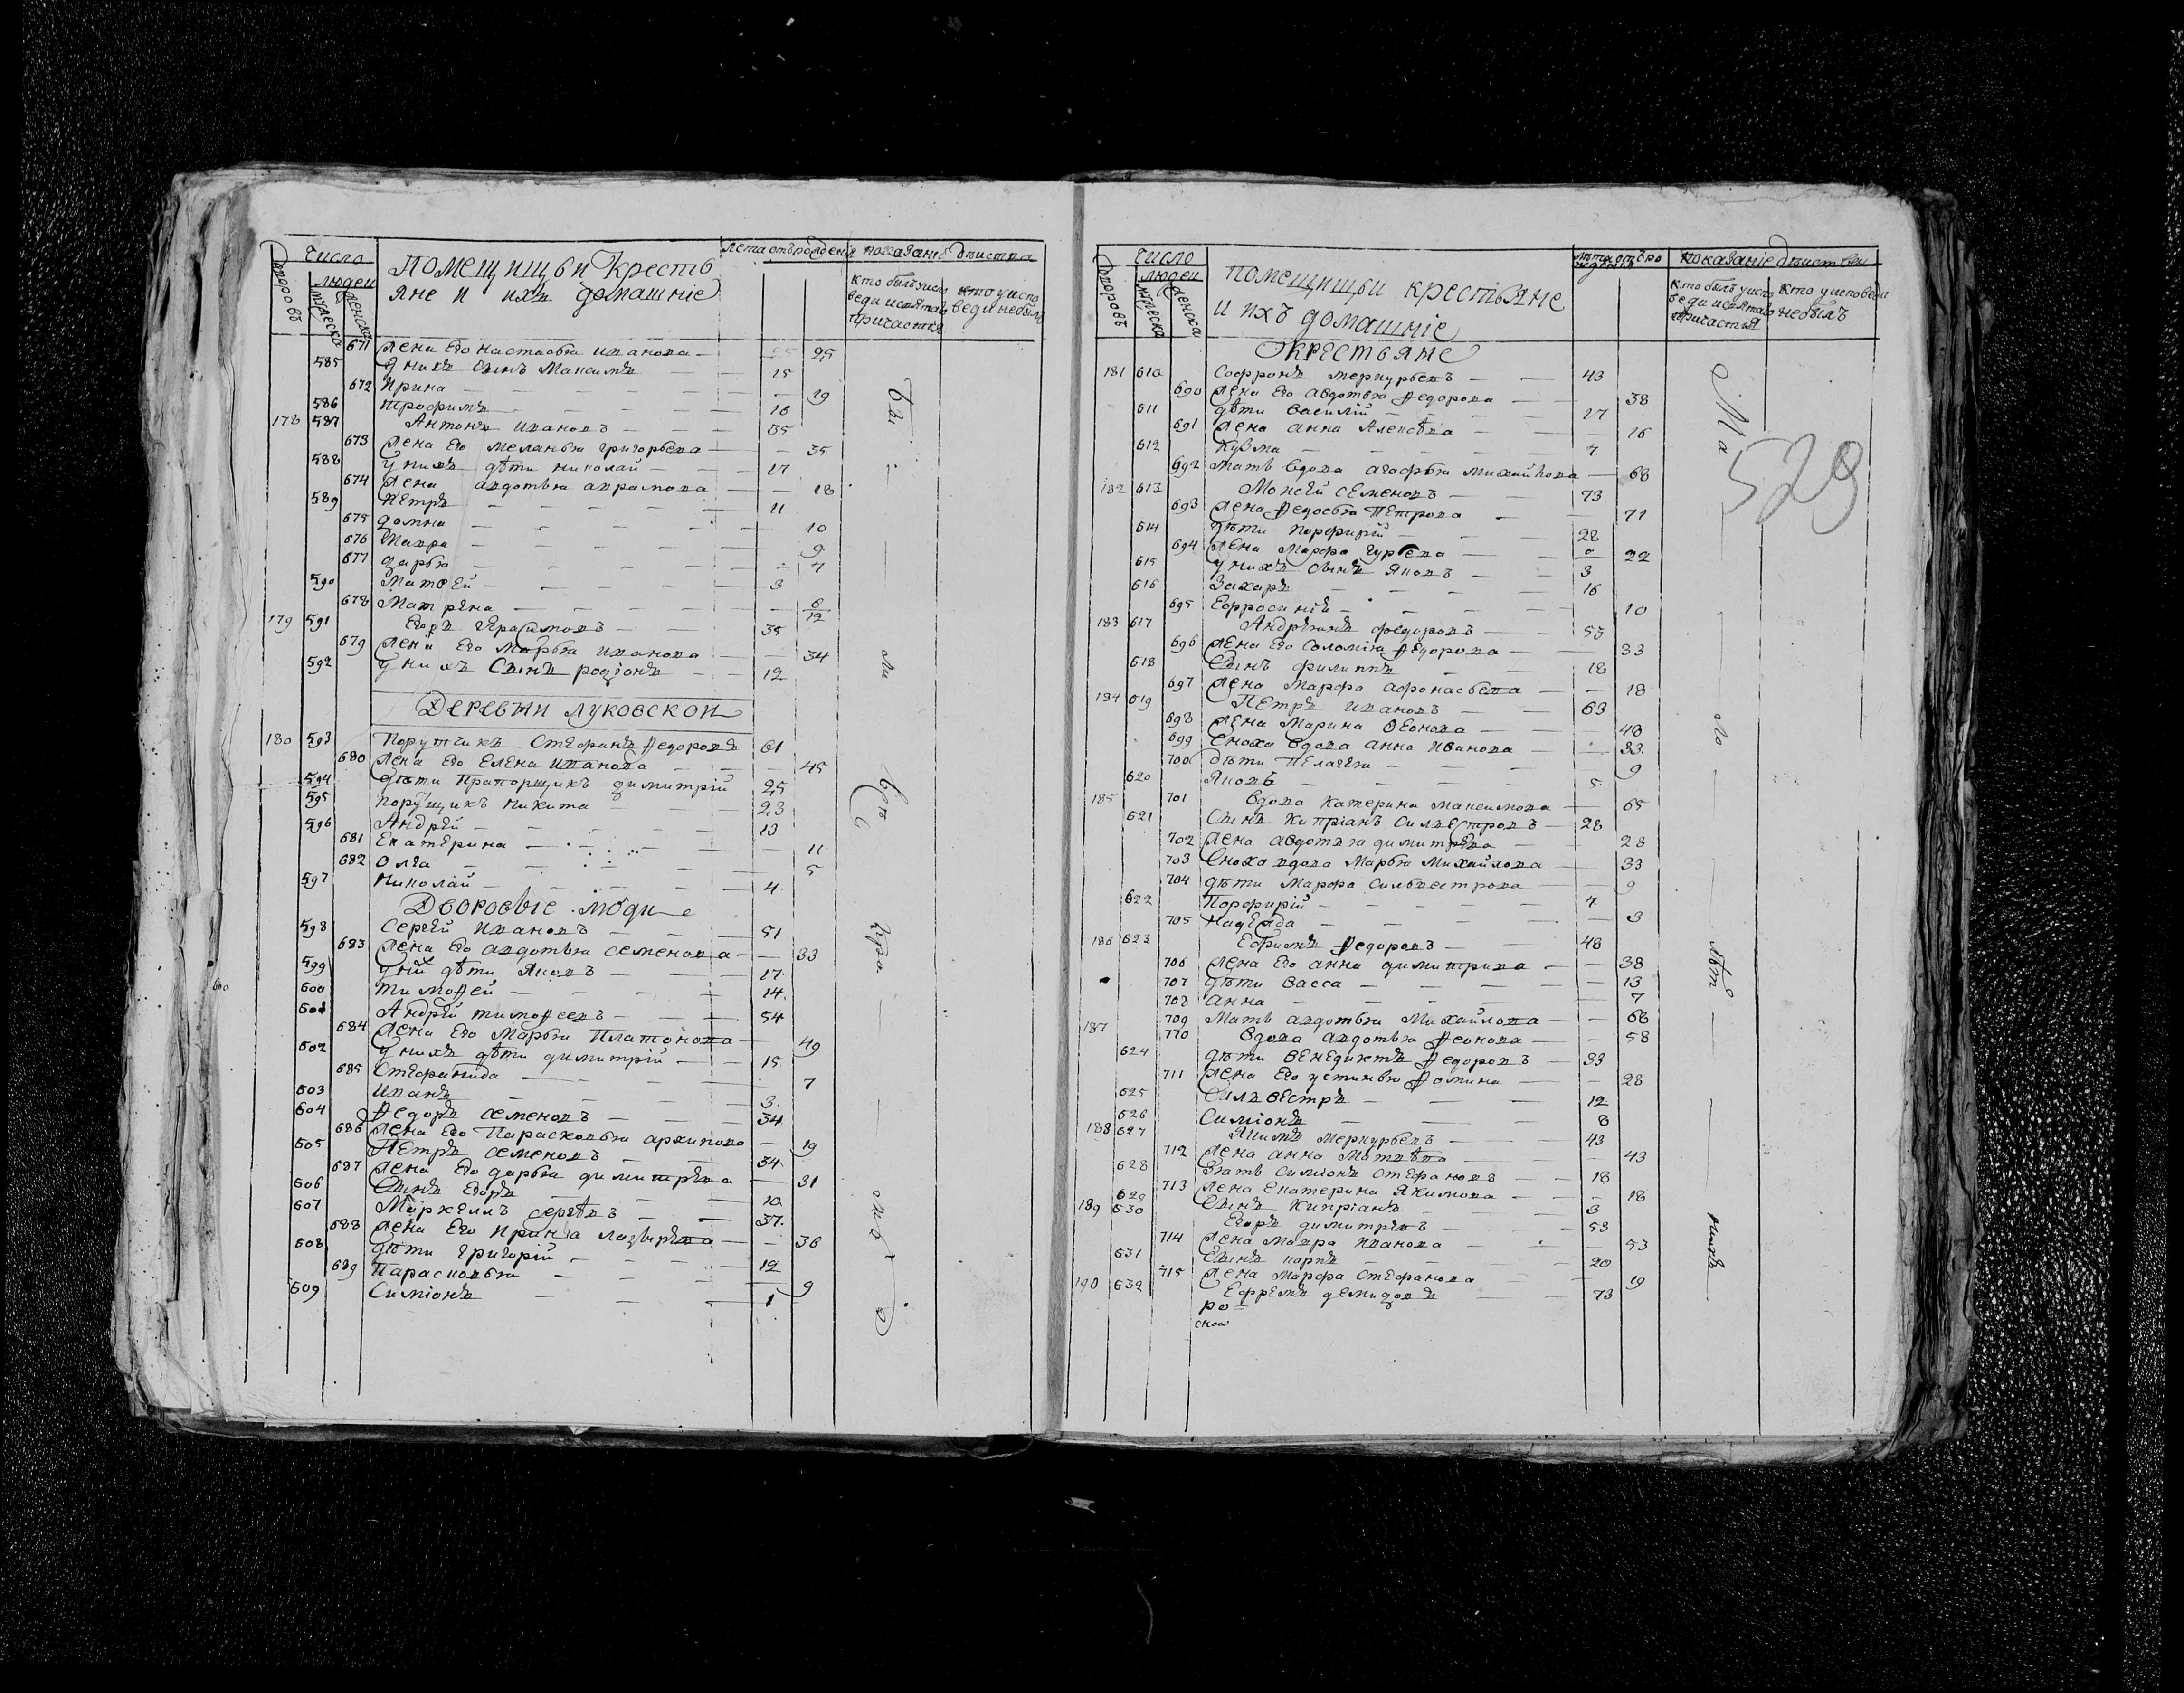 Число
Дворовъ
людей
мужеска
женска
Помещищьи Кресть
яне и ихъ домашніе
лета отърожденія
показаніе дѣиства
кто былъ уиспо
веди исвятаго
причастия
кто уиспо
веди небылъ
671 жена Его настасья иванова — 25 25
585 у нихъ Сынъ Максимъ — 15
672 Ирина — 19
586 трофимъ — 16
178 587 Антонъ ивановъ — 35
673 жена Его меланья григорьева — 35
588 у нихъ дѣти николай — 17
674 жена авдотья аврамова — 18
589 пЕтръ — 11
675 домна — 10
676 Мавра — 9
677 дарья — 4
590 Матѳей — 3
678 Матрена — 6/12
179 591 Егоръ гЕрасимовъ — 35
679 жена Его Марья иванова — 34
592 у нихъ Сынъ родіонъ — 12
ДЕРЕВНИ ЛУКОВСКОИ
180 593 Порутчикъ Стефанъ Ѳедоровъ 61
680 жена Его Елена иванова — 45
594 дѣти Прапорщикъ димитрій 25
595 порутщикъ никита 23
596 Андрей — 13
681 Екатерина — 11
682 Олга — 5
597 Николай — 4
Дворовые люди
598 Сергей Ивановъ — 51
683 жена Его авдотья семенова — 33
599 у ней дѣти Яковъ — 17
600 тимоѳей — 14
601 Андрей тимоѳеевъ — 54
684 жена Его Марья Платонова — 49
602 у нихъ дѣти димитрій — 15
685 Стефанида — 7
603 иванъ — 3
604 Ѳедоръ семеновъ — 34
686 жена Его Парасковья архипова — 19
605 Петръ семеновъ — 34
687 жена Его дарья димитрева — 31
606 Сынъ Егоръ — 10
607 Маркеллъ сергѣевъ — 37
688 жена Его Ирина — 36
608 дѣти григорій — 12
689 Парасковья — 9
609 Симіонъ — 1
Число
Дворовъ
людей
мужеска
женска
помещищьи крестьяне
и ихъ домашніе
лѣта отъ ро
жденія
показаніе дѣиствъи
кто былъ уиспо
веди исвятаго
причастья
кто уисповеди
небылъ
529
КРЕСТЬЯНЕ
181 610 Софронъ меркурьевъ — 43
690 жена Его авдотья Ѳедорова — 38
611 дѣти Василій — 17
691 жена анна Алексѣва — 16
612 Кузма — 7
692 мать вдова агафья михайлова — 68
182 613 Моисей семеновъ — 73
693 жена Ѳедосья Петрова — 71
614 дѣти порфирій — 28
694 жена Марфа гурьева — 22
615 у нихъ сынъ Яковъ — 3
616 Захаръ — 16
695 Ефросинія — 10
183 617 Андреянъ федоровъ — 53
696 жена Его Соломія Ѳедорова — 33
618 Сынъ филиппъ — 18
697 жена Марфа афонасьева — 18
184 619 Петръ ивановъ — 63
698 жена Марина Ѳеонова — 48
699 Сноха вдова анна Иванова — 33
700 дѣти Пелагея — 9
620 Яковъ — 5
185 701 вдова катерина максимова — 65
621 Сынъ Кипріанъ Силвестровъ — 28
702 жена авдотья димитрева — 28
703 Сноха вдова Марья Михайлова — 33
704 дѣти Марфа Сильвестрова — 9
622 Порфирій — 7
705 надежда — 3
186 623 Ефимъ Ѳедоровъ — 48
706 жена Его анна димитрива — 38
707 дѣти Васса — 13
708 анна — 7
709 Мать авдотья Михайлова — 68
187 710 вдова авдотья Ѳеонова — 58
624 дѣти венедиктъ Ѳедоровъ — 33
711 жена Его устинья Ѳомина — 28
625 Силвестръ — 12
626 Симіонъ — 8
188 627 Якимъ меркурьевъ — 43
712 жена анна Матвѣва — 43
628 Зять Симіонъ Стефановъ — 18
713 жена Екатерина Якимова — 18
629 Сынъ Кипріанъ — 3
189 630 Егоръ димитревъ — 53
714 жена мавра иванова — 53
631 Сынъ карпъ — 20
715 жена Марфа Стефанова — 19
190 632 Ефремъ демидовъ — 73